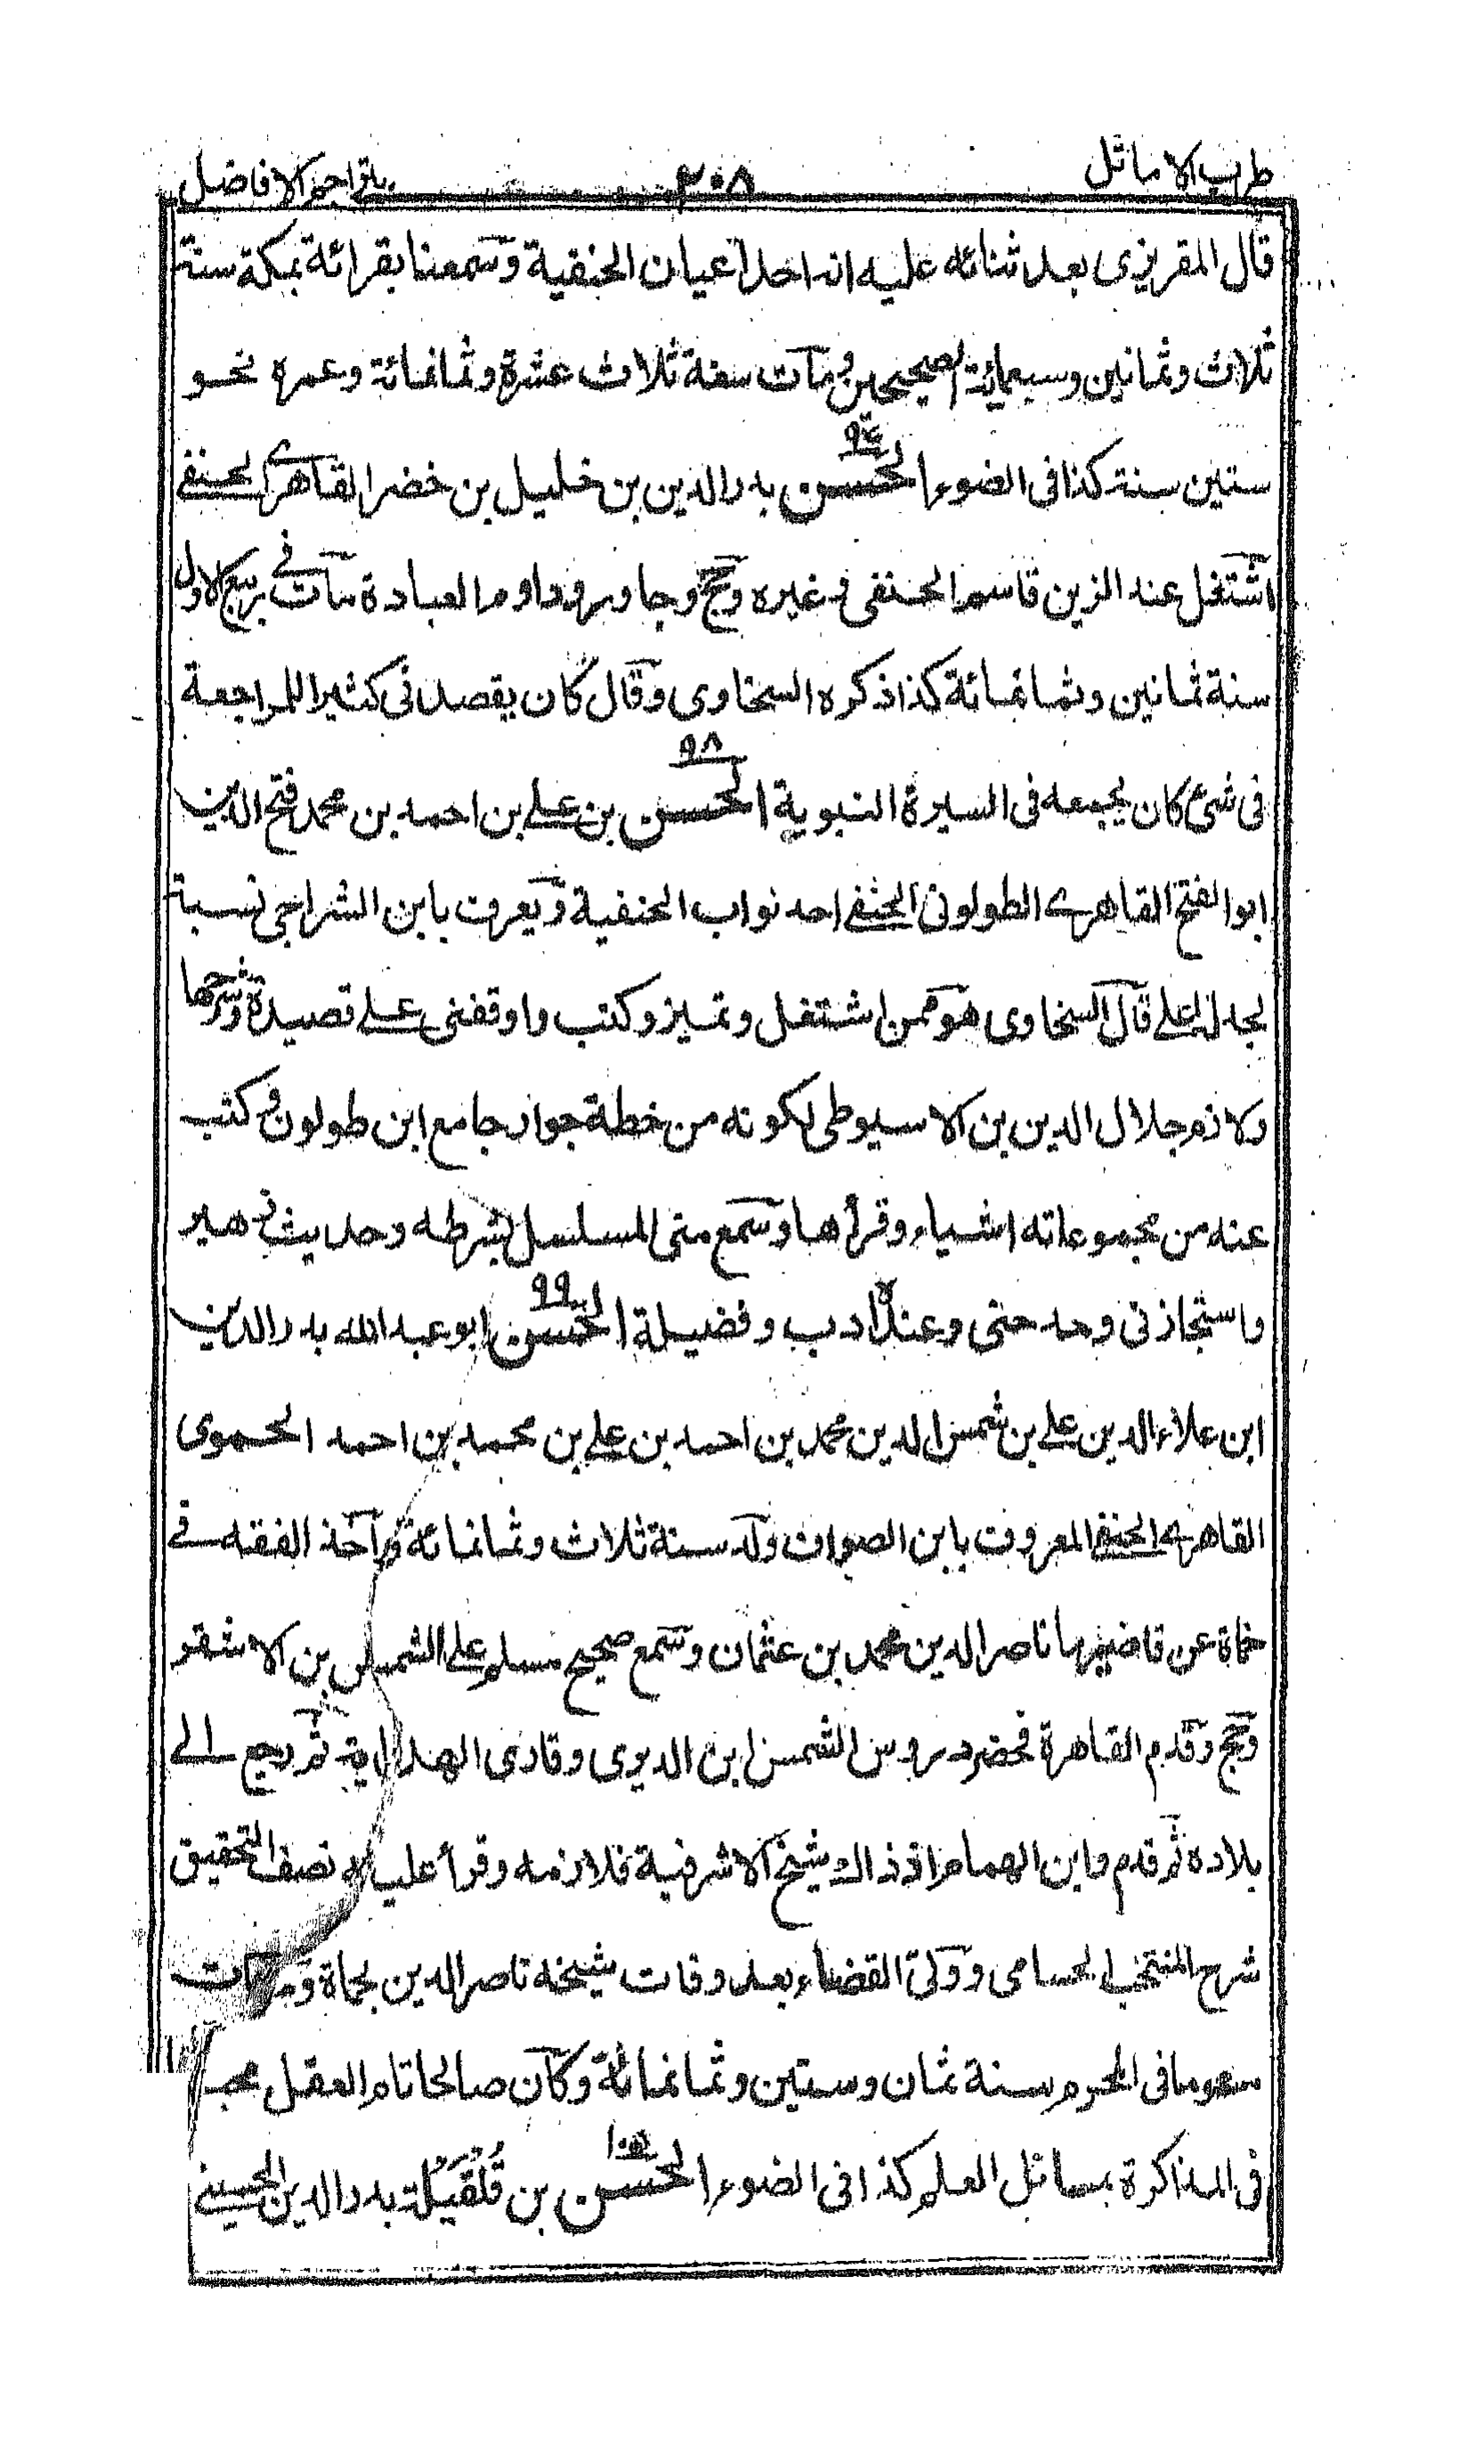 طرب الاماثل ٢٠٨ بتراجم الافاضل
قال المقريزى بعد ثنائه عليه انه احد اعيان الحنفية وسمعنا بقرائة بمكة سنة
ثلاث وثمانين وسبعمائة الصحيحين ومات سنة ثلاث عشرة وثمانمائة وعمره نحو
ستين سنة كذا فى الضوء الحسن بدر الدين بن خليل بن خضر القاهرى الحنفى
اشتغل عند الزين قاسم الحنفى وغيره وحج وجاور وداوم العبادة مات فى ربيع الاول
سنة ثمانين وثمانمائة كذا ذكره السخاوى وقال كان يقصدنى كثيرا للمراجعة
٩٨
فى شئ كان يجمعه فى السيرة النبوية الحسن بن على بن احمد بن محمد فتح الدين
ابو الفتح القاهرى الطولونى الحنفى احد نواب الحنفية ويعرف بابن الشراجى نسبة
لجده لاعلى قال السخاوى هو ممن اشتغل وتميز وكتب واوقفنى على قصيدة وشرحها
ولازم جلال الدين بن الاسيوطى لكونه من خطة جوار جامع ابن طولون وكتب
عنه من مجموعاته اشياء وقرأها وسمع منى المسلسل بشرطه وحديث زهير
٩٩
واستجازنى وحد حتى وعنده ادب وفضيلة الحسن ابو عبد الله بدر الدين
ابن علاء الدين على بن شمس الدين محمد بن احمد بن على بن محمد بن احمد الحموى
القاهرى الحنفى المعروف بابن الصواف ولد سنة ثلاث وثمانمائة واخذ الفقه فى
حماة عن قاضيها ناصر الدين محمد بن عثمان وسمع صحيح مسلم على الشمس بن الاشقر
وحج وقدم القاهرة فحضر دروس الشمس ابن الديرى وقارى الهداية ثم رجع الى
بلاده ثم قدم وابن الهمام اذ ذاك شيخ الاشرفية فلازمه وقرأ عليه نصف التحقيق
شرح المنتخب الحسامى وولى القضاء بعد وفات شيخه ناصر الدين بحماة ومات
مسموما فى المحرم سنة ثمان وستين وثمانمائة وكان صالحا تام العقل
١٠٠
فى المذاكرة بمسائل العلم كذا فى الضوء الحسن بن قُلْقَيْلة بدر الدين الحسينى